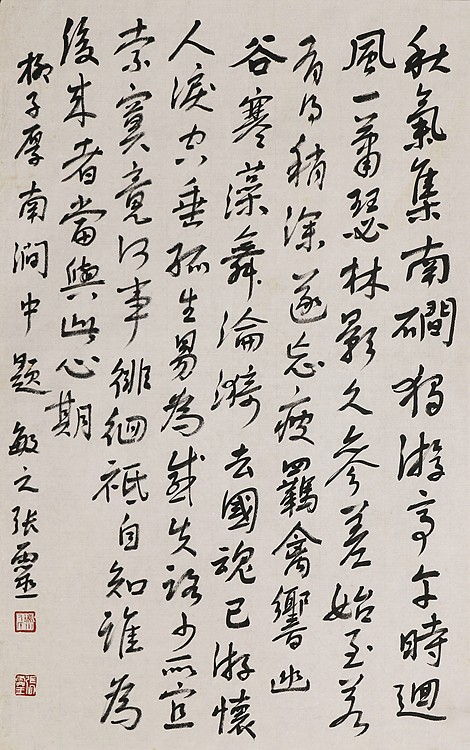 秋氣集南磵獨游亭午時迴
風一蕭瑟林影久參差始至若
有得稍深遂忘疲羈禽響幽
谷寒藻舞淪漪去國魂已游懷
人淚空垂孤生易為感失路少所宜
索寞竟何事徘徊祇自知誰為
後來者當與此心期
柳子厚南澗中題 敏之張靈